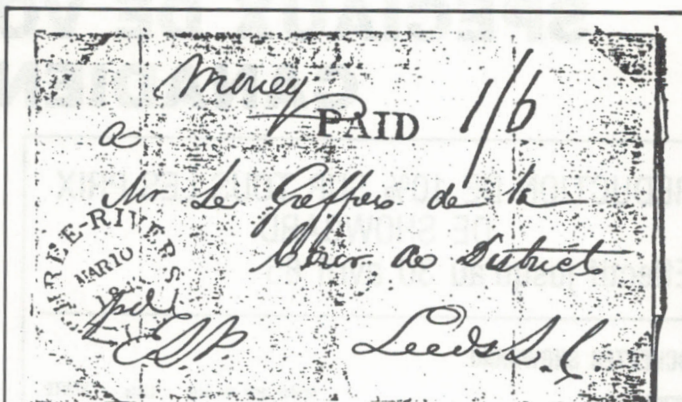 Money
PAID 1/6
a
Mr Le Greffier de la
Cour de District
THREE-RIVERS
MAR 10
pd
Leeds L.C.